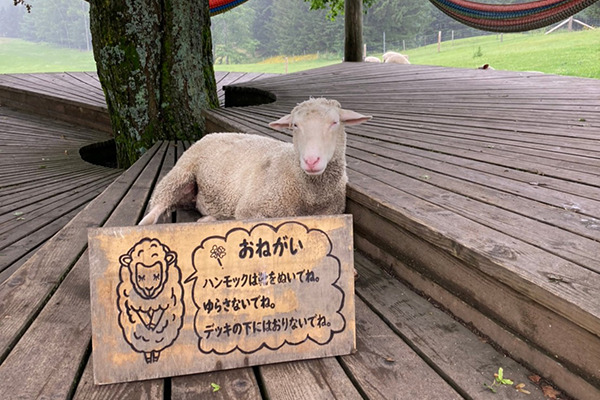 おねがい
ハンモックは靴をぬいでね。
ゆらさないでね。
デッキの下にはおりないでね。